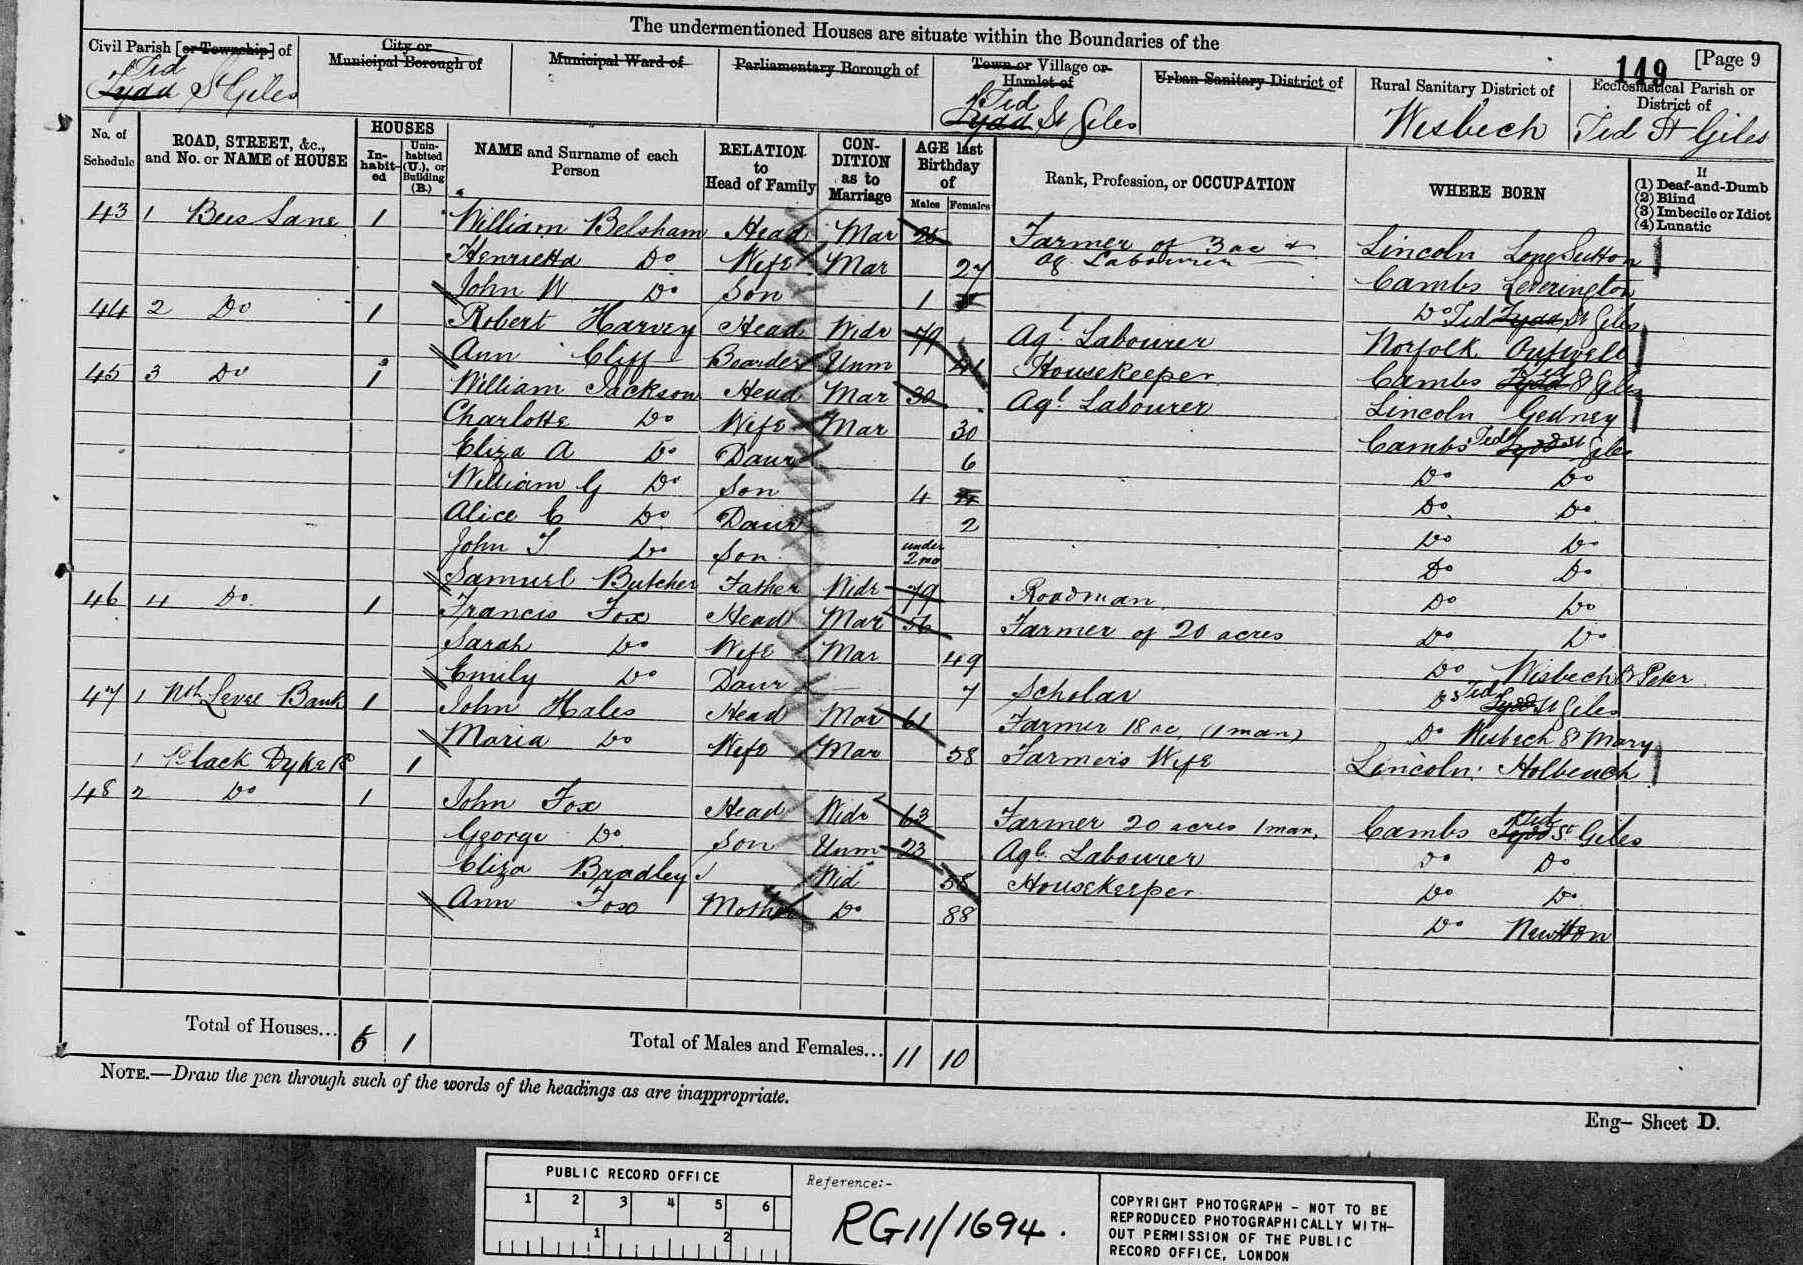 The undermentioned Houses are situate within the Boundaries of the
[Page 9
149
Civil Parish [or Township] of
Tid
Tydd St Giles
City or
Municipal Borough of
Municipal Ward of
Parliamentary Borough of
Town or Village or
Hamlet of
Tid
Tydd St Giles
Urban Sanitary District of
Rural Sanitary District of
Wisbech
Ecclesiastical Parish or
District of
Tid St Giles
No. of
Schedule
ROAD, STREET, &c.,
and No. or NAME of HOUSE
HOUSES
In-
habit-
ed
Unin-
habited
(U.), or
Building
(B.)
NAME and Surname of each
Person
RELATION
to
Head of Family
CON-
DITION
as to
Marriage
AGE last
Birthday
of
Males
Females
Rank, Profession, or OCCUPATION
WHERE BORN
If
(1) Deaf-and-Dumb
(2) Blind
(3) Imbecile or Idiot
(4) Lunatic
43 1 Bees Lane 1 William Belsham Head Mar Farmer of 3 ac & Ag. Labourer Lincoln Long Sutton
Henrietta Do Wife Mar 27 Cambs Leverington
John W Do Son 1 Do Tid Tydd St Giles
44 2 Do 1 Robert Harvey Head Widr 79 Agl. Labourer Norfolk Outwell
Ann Cliff Boarder Unm Housekeeper Cambs Tid Tydd St Giles
45 3 Do 1 William Jackson Head Mar 30 Agl. Labourer Lincoln Gedney
Charlotte Do Wife Mar 30 Cambs Tid Tydd St Giles
Eliza A Do Daur 6 Do Do
William G Do Son 4 Do Do
Alice E Do Daur 2 Do Do
John T Do Son under 2 mo Do Do
Samuel Butcher Father Widr 79 Roadman Do Do
46 4 Do 1 Francis Fox Head Mar 56 Farmer of 20 acres Do Do
Sarah Do Wife Mar 49 Do Wisbech St Peter
Emily Do Daur 7 Scholar Do Tid Tydd St Giles
47 1 Nth Level Bank 1 John Hales Head Mar 61 Farmer 18 ac, (1 man) Do Wisbech St Mary
Maria Do Wife Mar 58 Farmers Wife Lincoln Holbeach
1 Black Dyke 1
48 2 Do 1 John Fox Head Widr 63 Farmer 20 acres 1 man, Cambs Tid Tydd St Giles
George Do Son Unm 23 Agl. Labourer Do Do
Eliza Bradley Wid 58 Housekeeper Do Do
Ann Fox Mother Do 88 Do Newton
Total of Houses... 5 1
Total of Males and Females... 11 10
NOTE.—Draw the pen through such of the words of the headings as are inappropriate.
Eng— Sheet D.
PUBLIC RECORD OFFICE
1 2 3 4 5 6
1 2
Reference:-
RG11/1694.
COPYRIGHT PHOTOGRAPH - NOT TO BE
REPRODUCED PHOTOGRAPHICALLY WITH-
OUT PERMISSION OF THE PUBLIC
RECORD OFFICE, LONDON